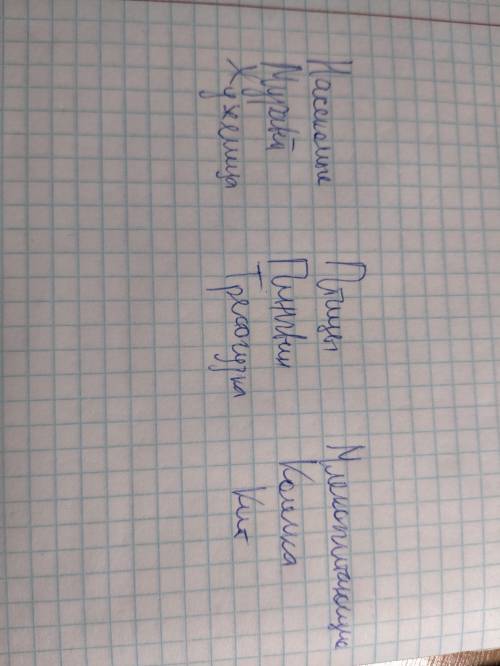 Насекомые Птицы Млекопитающие
Муравей Пингвин Кошка
Жужелица Трясогузка Кит